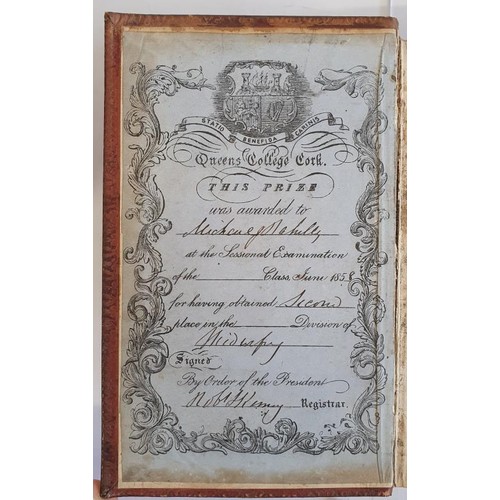 STATIO BENEFIDA CARINIS
Queens College Cork.
THIS PRIZE
was awarded to
Michael J Rahilly
at the Sessional Examination
of the Class, June 1858
for having obtained Second
place in the Division of
Midwifry
Signed
By Order of the President
Registrar.